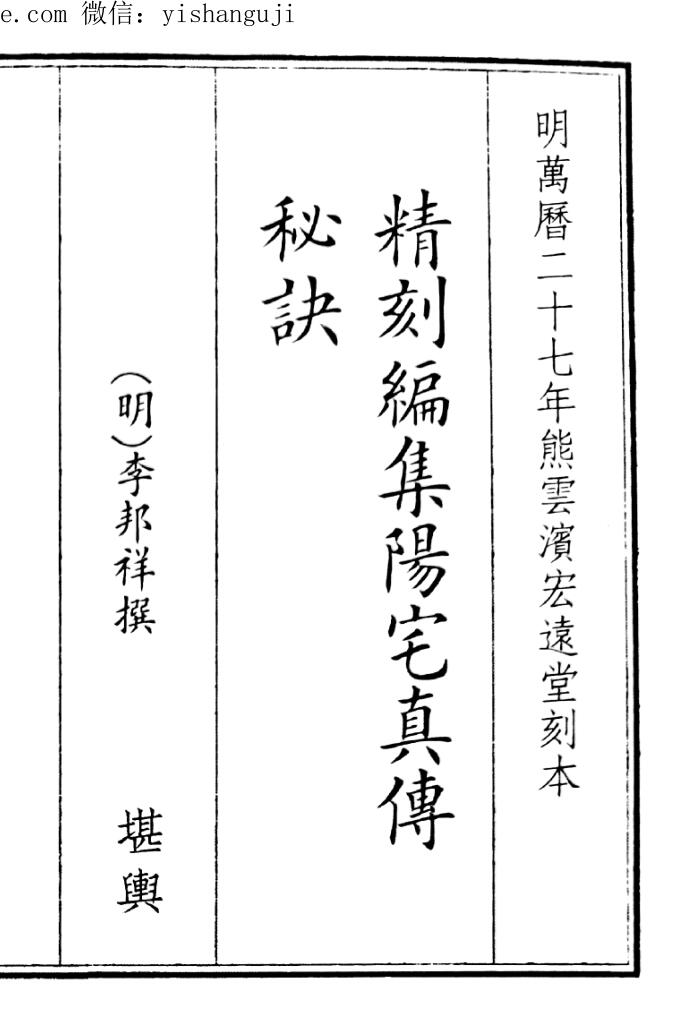 e.com 微信：yishanguji
明萬曆二十七年熊雲濱宏遠堂刻本
精刻編集陽宅真傳
秘訣
（明）李邦祥撰
堪輿